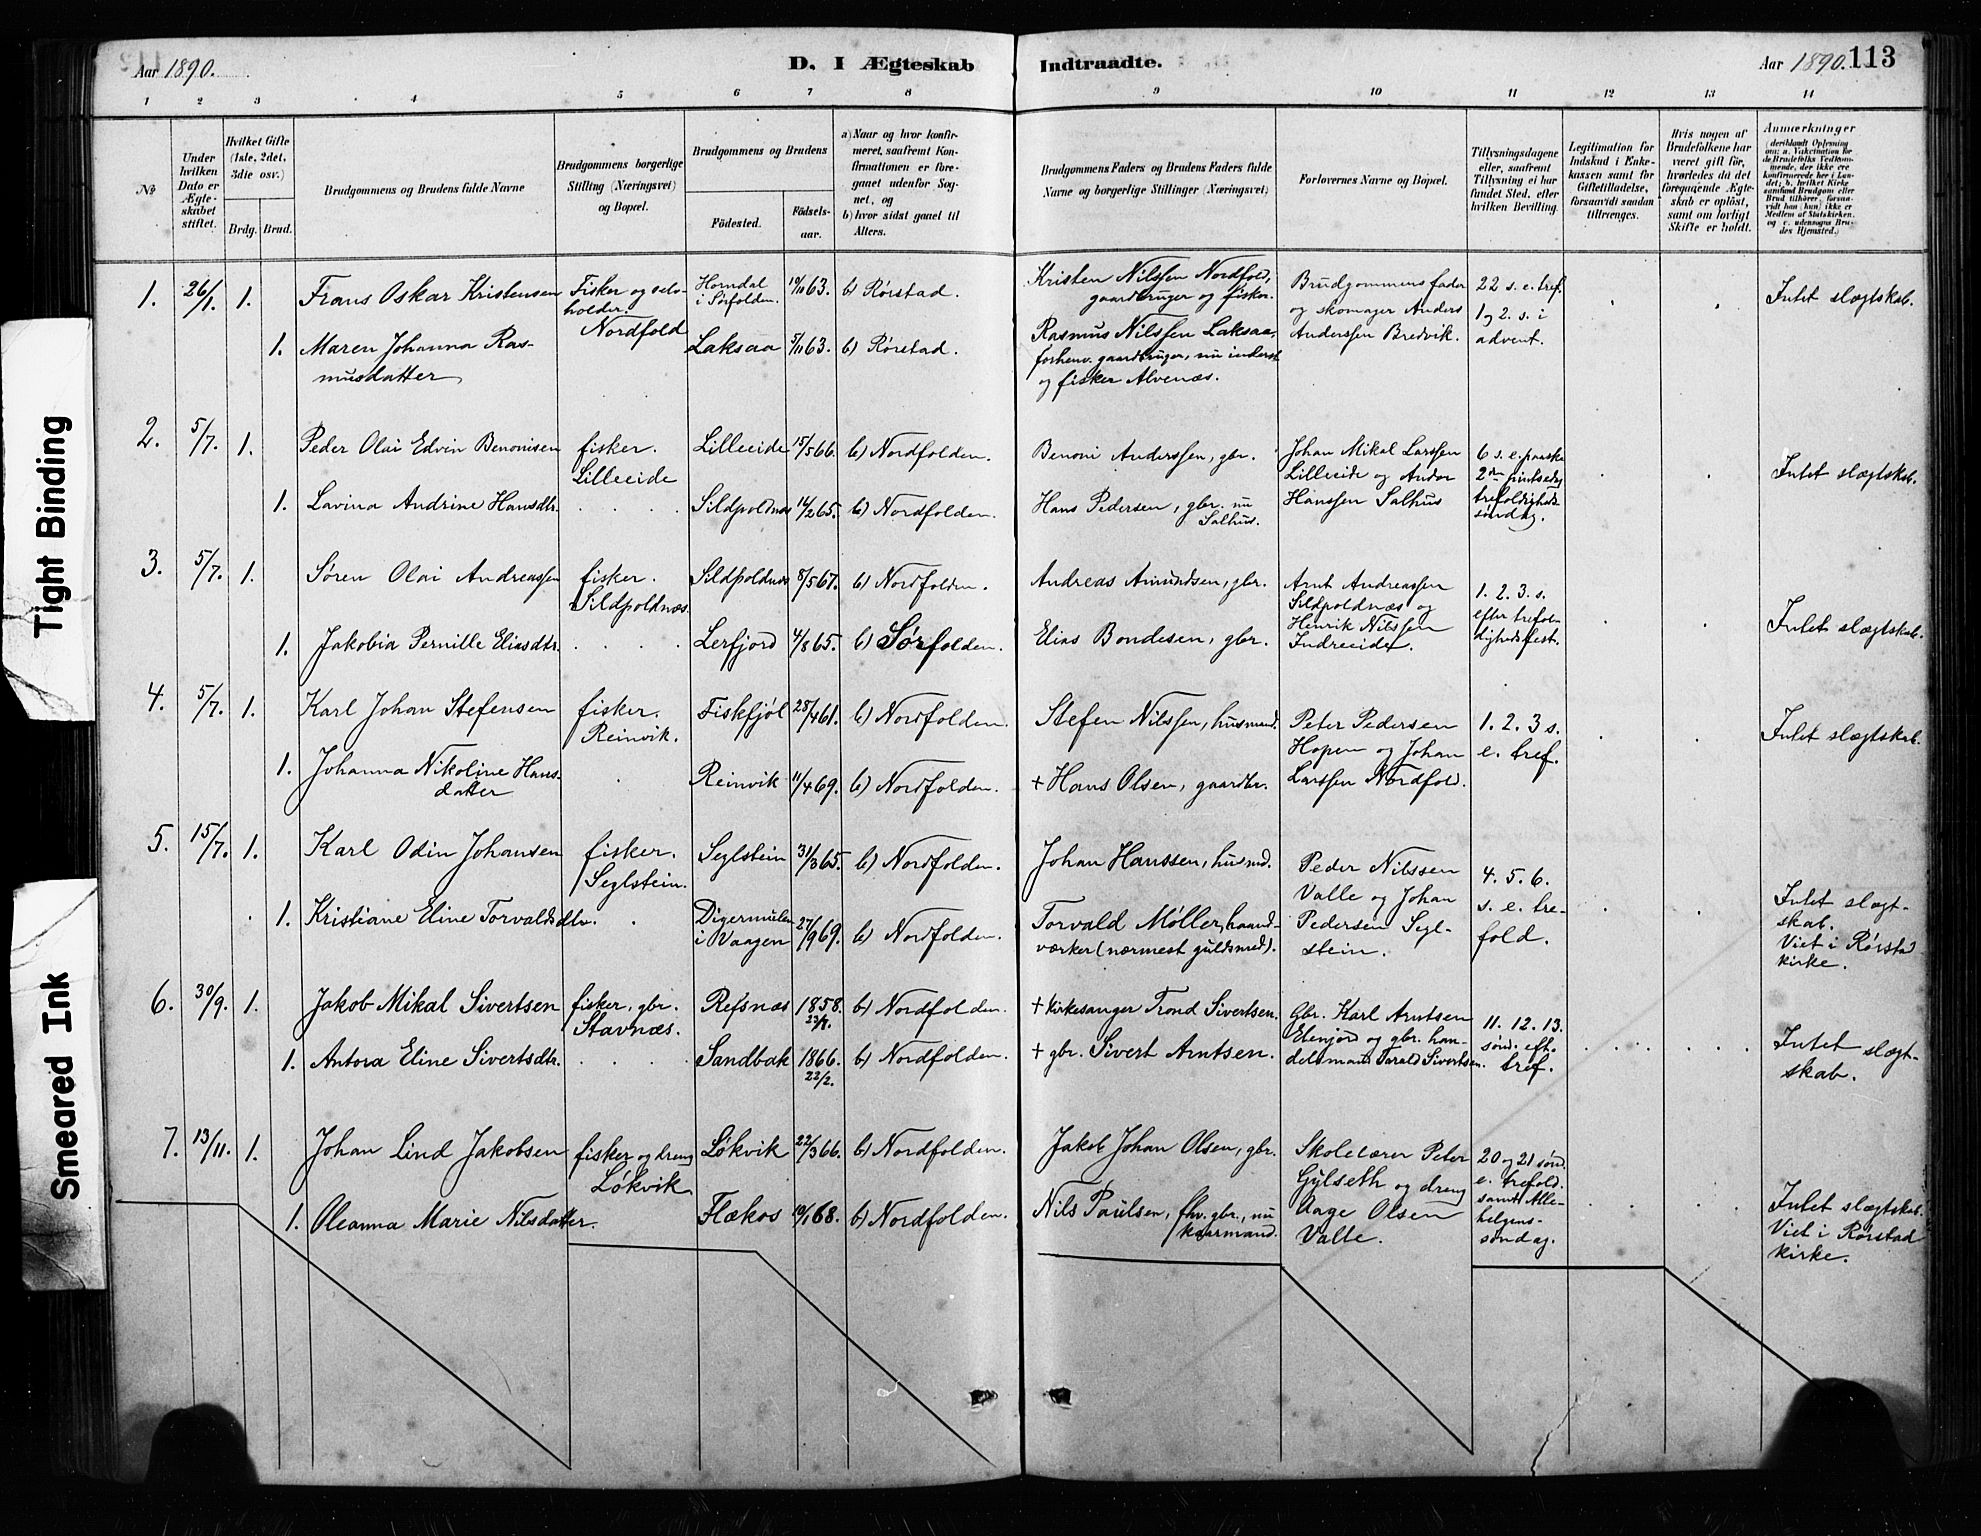 Aar 1890.
D. I Ægteskab
Indtraadte.
Aar 1890. 113
1 2 3 4 5 6 7 8 9 10 11 12 13 14
№
Under hvilken Dato er Ægteskabet stiftet.
Hvilket Gifte (1ste, 2det, 3die osv.)
Brdg. Brud.
Brudgommens og Brudens fulde Navne
Brudgommens borgerlige Stilling (Næringsvei) og Bopæl.
Brudgommens og Brudens
Fødested.
Fødselsaar.
a) Naar og hvor konfirmeret, saafremt Konfirmationen er foregaaet udenfor Sognet, og
b) hvor sidst gaaet til Alters.
Brudgommens Faders og Brudens Faders fulde Navne og borgerlige Stillinger (Næringsvei)
Forlovernes Navne og Bopæl.
Tillysningsdagene eller, saafremt Tillysning ei har fundet Sted, efter hvilken Bevilling.
Legitimation for Indskud i Enkekassen samt for Giftetilladelse, forsaavidt saadan tiltrænges.
Hvis nogen af Brudefolkene har været gift før, hvorledes da det foregaaende Ægteskab er opløst, samt om lovligt Skifte er holdt.
Anmærkninger (deriblandt Oplysning om: a. Vakcination for de Brudefolks Vedkommende, der ikke ere konfirmerede her i Landet; b. hvilket Kirkesamfund Brudgom eller Brud tilhører, forsaavidt han (hun) ikke er Medlem af Statskirken, og c. udensogns Brudes Hjemsted.)
1. 26/1. 1. Frans Oskar Kristensen Fisker og selvholder. Nordfold Horndal i Sørfolden 19/11 63. b) Rørstad. Kristen Nilssen Nordfold, gaardbruger og fisker. Brudgommens fader og skomager Anders Anderssen Bredvik. 22 s. e. tref. 1 og 2. s. i advent. Intet slægtskab.
1. Maren Johanna Rasmusdatter Laksaa 5/11 63. b) Rørstad. Rasmus Nilssen Laksaa, forhenv. gaardbruger, nu inderst og fisker Alvenæs.
2. 5/7. 1. Peder Olai Edvin Benonisen fisker. Lilleeide Lilleeide 15/5 66. b) Nordfolden. Benoni Anderssen, gbr. Johan Mikal Larssen Lilleeide og Andor Hanssen Salhus 6 s. e. paaske 2den pintsedag trefoldigheds søndag. Intet slægtskab.
1. Lavina Andrine Hansdtr. Sildpoldnæs 14/2 65. b) Nordfolden. Hans Pedersen, gbr. nu Salhus.
3. 5/7. 1. Søren Olai Andreassen fisker. Sildpoldnæs. Sildpoldnæs 8/5 67. b) Nordfolden. Andreas Amundsen, gbr. Arnt Andreassen Sildpoldnæs og Henrik Nilssen Indreeide. 1. 2. 3. s. efter trefoldighedsfest. Intet slægtskab.
1. Jakobia Pernille Eliasdtr. Lerfjord 4/8 65. b) Sørfolden. Elias Bondesen, gbr.
4. 5/7. 1. Karl Johan Stefensen fisker. Reinvik. Fiskfjøl 28/4 61. b) Nordfolden. Stefen Nilssen, husmand. Peter Pedersen Hopen og Johan Larssen Nordfold. 1. 2. 3 s. e. tref. Intet slægtskab.
1. Johanna Nikoline Hansdatter Reinvik 11/4 69. b) Nordfolden. + Hans Olsen, gaardbr.
5. 15/7. 1. Karl Odin Johansen fisker. Seglstein. Seglstein 31/3 65. b) Nordfolden. Johan Hanssen, husmd. Peder Nilssen Valle og Johan Pedersen Seglstein. 4. 5. 6. s. e. trefold. Intet slægtskab. Viet i Rørstad kirke.
1. Kristiane Eline Torvaldsdtr. Digermulen i Vaagen 27/9 69. b) Nordfolden. Torvald Møller, haandværker (nærmest guldsmed).
6. 30/9. 1. Jakob Mikal Sivertsen fisker, gbr. Stavnæs. Refsnæs 1858. 23/7. b) Nordfolden. + Kirkesanger Trond Sivertsen. Gbr. Karl Arntsen Elenjord og gbr. handelsmand Tarald Sivertsen. 11. 12. 13. sønd. eft. tref. Intet slægtskab.
1. Antora Eline Sivertsdtr. Sandbak 1866. 22/2. b) Nordfolden. + gbr. Sivert Arntsen.
7. 13/11. 1. Johan Lind Jakobsen fisker og dreng Løkvik Løkvik 22/3 66. b) Nordfolden. Jakob Johan Olsen, gbr. Skolelærer Peter Gylseth og dreng Aage Olsen Valle. 20 og 21 sønd. e. trefold. samt Allehelgenssøndag. Intet slægtskab. Viet i Rørstad kirke.
1. Oleanna Marie Nilsdatter. Flækos 19/1 68. b) Nordfolden. Nils Paulsen, fhv. gbr., nu kaarmand.
Tight Binding
Smeared Ink